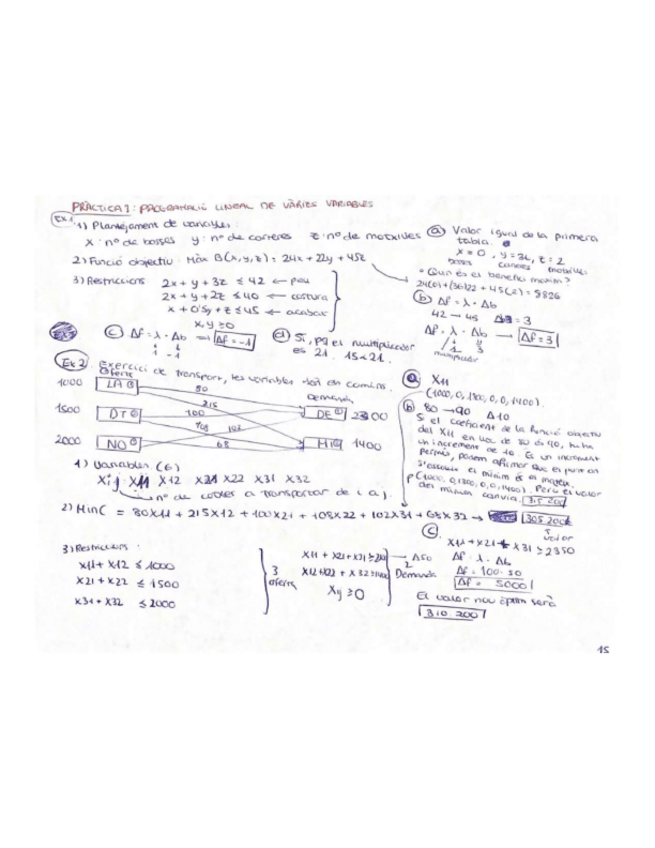 PRÀCTICA 1: PROGRAMACIÓ LINEAL DE VÀRIES VARIABLES
Ex 1
1) Plantejament de variables:
x: nº de bosses y: nº de carteres z: nº de motxiles
2) Funció objectiu: Màx B(x,y,z) = 24x + 22y + 45z
3) Restriccions: 2x + y + 3z ≤ 42 ← pell
2x + y + 2z ≤ 40 ← costura
x + 0'5y + z ≤ 45 ← acabar
x,y ≥ 0
a) Valor igual de la primera
tabla.
x = 0, y = 36, z = 2
bosses carteres motxiles
• Quin és el benefici màxim?
b) Δf = λ · Δb
42 → 45 Δb = 3
Δf = λ · Δb → Δf = 3
1 3
multiplicador
c) Δf = λ · Δb ⇒ Δf = -1
1 -1
d) Sí, pq el multiplicador
es 21. 15<21.
Ex 2 Exercici de transport, les variables són en camins.
Oferta
Demanda
1000 LA ① 80
215
1500 DT ② 100 DE ① 2300
108 102
2000 NO ③ 68 MI ② 1400
1) Variables (6)
Xij: X11 X12 X21 X22 X31 X32
nº de cotxes a transportar de i a j.
2) Min C = 80X11 + 215X12 + 100X21 + 108X22 + 102X31 + 68X32 → 305.200€
valor
3) Restriccions:
X11 + X12 ≤ 1000
X21 + X22 ≤ 1500
X31 + X32 ≤ 2000
3
oferta
X11 + X21 + X31 ≥ 2300
X12 + X22 + X32 ≥ 1400
Xij ≥ 0
→ Δ50
2
Demanda
a) X11
(1000, 0, 1300, 0, 0, 1400).
b) 80 → 90 Δ10
Si el coeficient de la funció objectiu
del X11 en voz de 80 és 90, hi ha
un increment de 10. És un increment
permès, podem afirmar que el punt on
s'assoleix el mínim és el mateix.
P(1000, 0, 1300, 0, 0, 1400). Però el valor
del mínim canvia. 315.200
c)
X11 + X21 + X31 ≥ 2350
Δf = λ · Δb
Δf = 100 · 50
Δf = 5000
El valor nou òptim serà
310.200
15